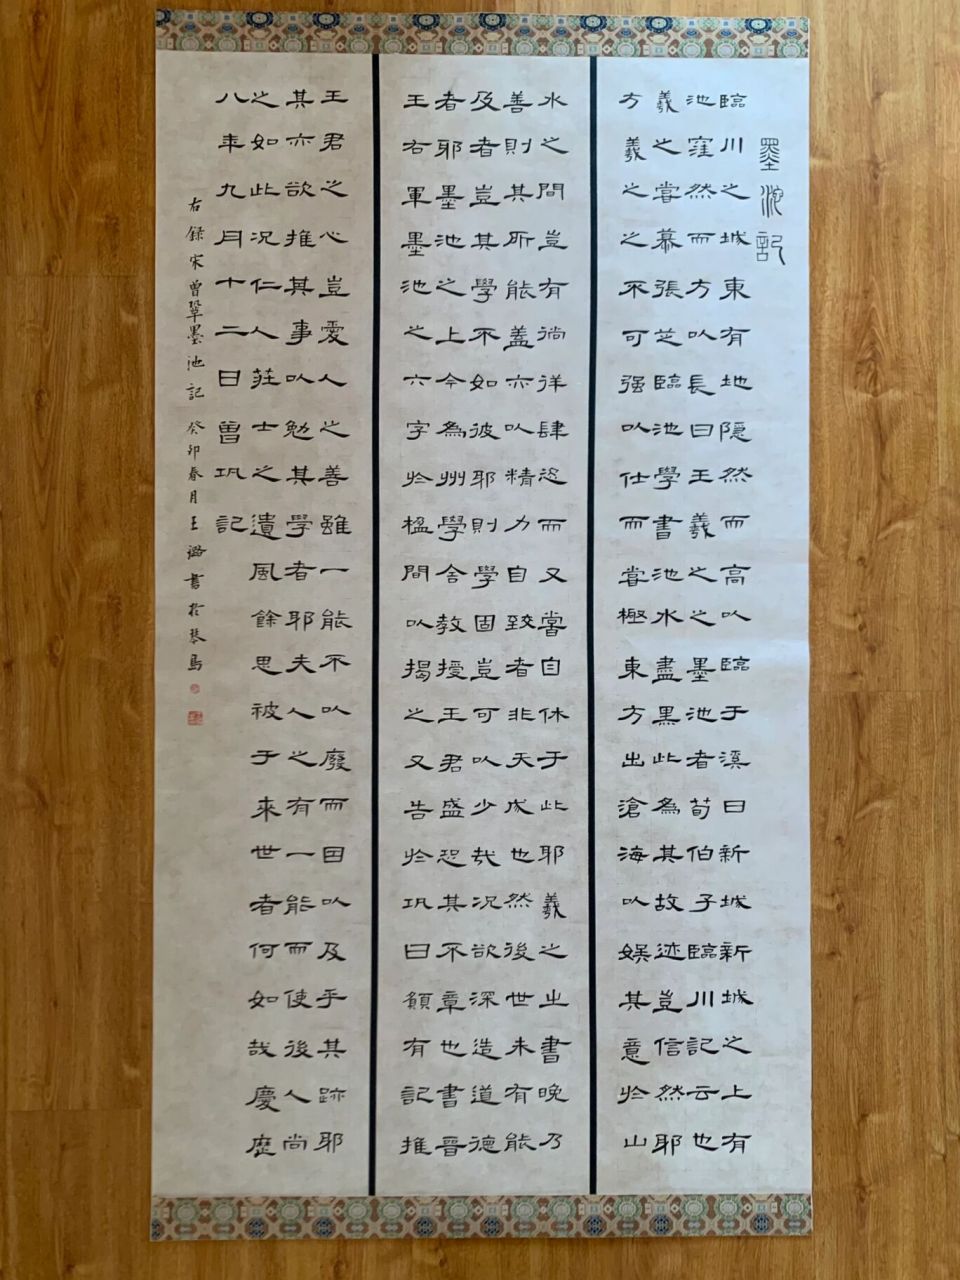 墨池記
臨川之城東有地隐然而高以臨于溪曰新城新城之上有
池窪然而方以長曰王羲之之墨池者荀伯子臨川記云也
羲之嘗慕張芝臨池學書池水盡黑此為其故迹豈信然耶
方羲之之不可强以仕而嘗極東方出滄海以娱其意於山
水之間豈有徜徉肆恣而又嘗自休于此耶羲之之書晚乃
善則其所能盖亦以精力自致者非天成也然後世未有能
及者豈其學不如彼耶則學固豈可以少哉况欲深造道德
者耶墨池之上今為州學舍教授王君盛恐其不章也書晉
王右軍墨池之六字於楹間以揭之又告於巩曰願有記推
王君之心豈愛人之善雖一能不以廢而因以及乎其跡耶
其亦欲推其事以勉其學者耶夫人之有一能而使後人尚
之如此况仁人莊士之遺風餘思被于來世者何如哉慶歷
八年九月十二日曾巩記
右錄宋曾鞏墨池記 癸卯春月王潞書於琴島